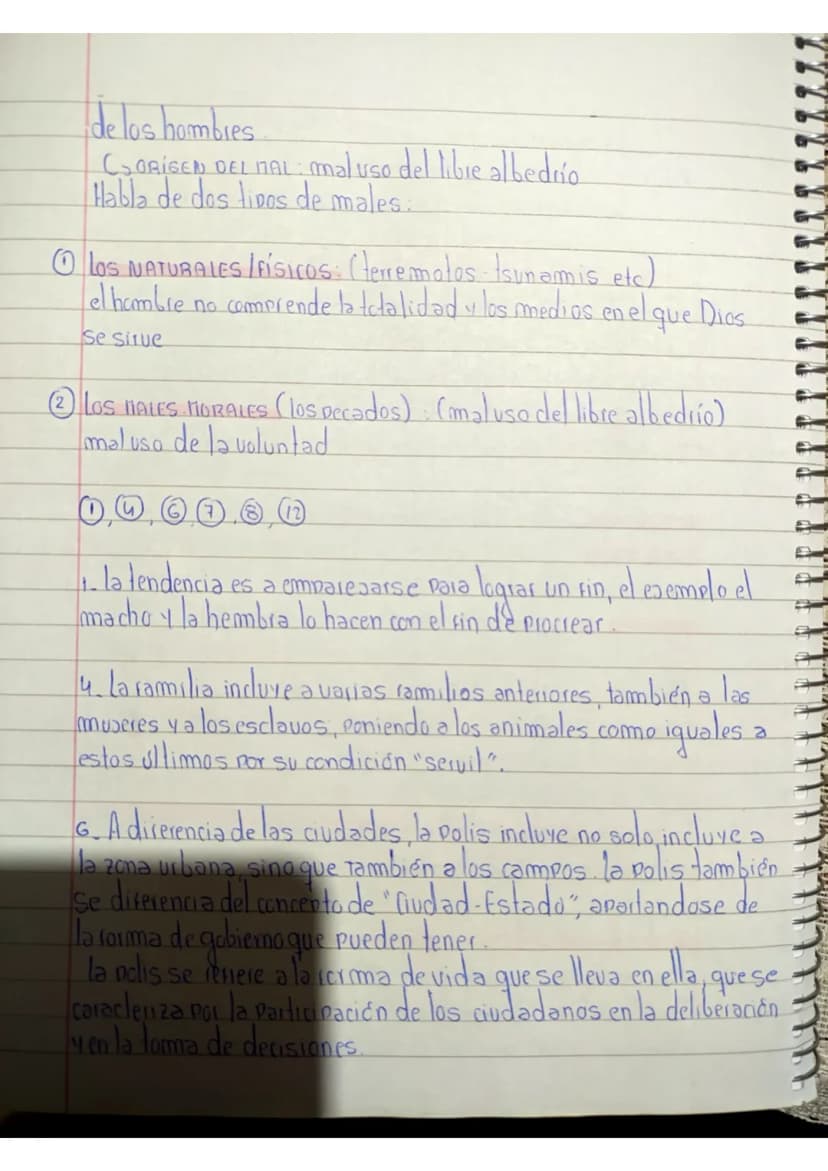 de los hombres
↳ ORÍGEN DEL MAL: mal uso del libre albedrío
Habla de dos tipos de males:
① LOS NATURALES/FÍSICOS: (terremotos-tsunamis etc)
el hombre no comprende la totalidad y los medios en el que Dios
se sirve
② LOS MALES MORALES (los pecados): (mal uso del libre albedrío)
mal uso de la voluntad
①, ④, ⑥, ⑦, ⑧, ⑫
1. la tendencia es a emparejarse para lograr un fin, el ejemplo el
macho y la hembra lo hacen con el fin de procrear.
4. La familia incluye a varias familias anteriores, también a las
mujeres y a los esclavos, poniendo a los animales como iguales a
estos últimos por su condición "servil".
6. A diferencia de las ciudades, la polis incluye no solo, incluye a
la zona urbana, sino que también a los campos. la polis también
se diferencia del concepto de "Ciudad-Estado", apartandose de
la forma de gobierno que pueden tener.
la polis se refiere a la forma de vida que se lleva en ella, que se
caracteriza por la participación de los ciudadanos en la deliberación
y en la toma de decisiones.